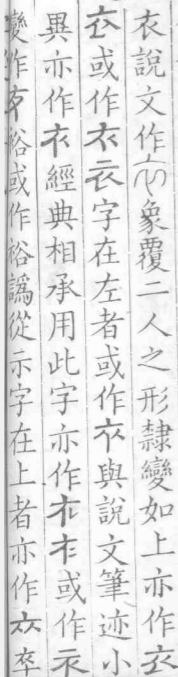 衣說文作象覆二人之形隸變如上亦作
或作字在左者或作與說文筆迹小
異亦作衣經典相承用此字亦作或作
變作裕或作裕譌從示字在上者亦作卒